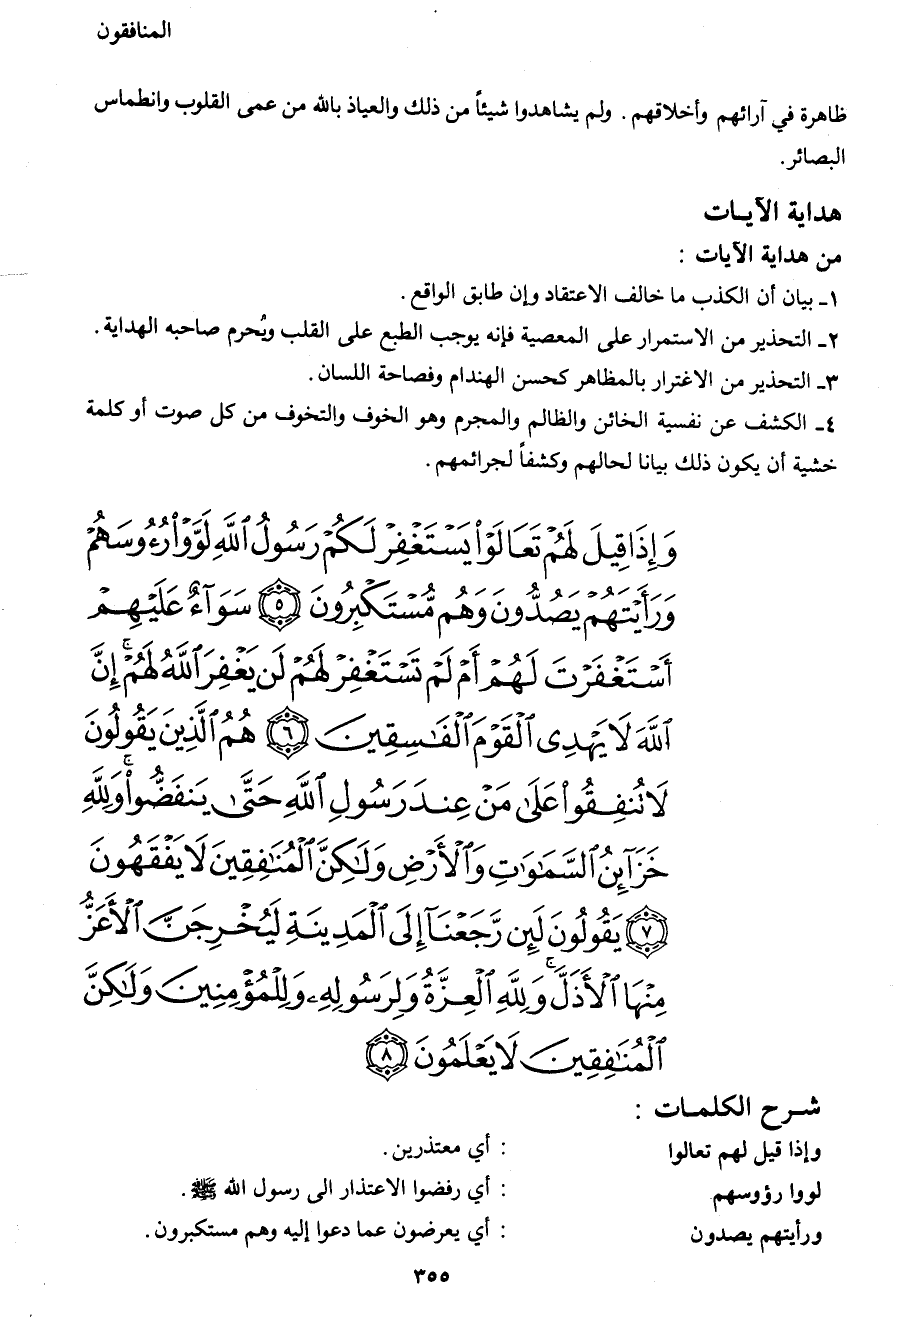 المنافقون
ظاهرة في آرائهم وأخلاقهم . ولم يشاهدوا شيئاً من ذلك والعياذ بالله من عمى القلوب وانطماس
البصائر .
هداية الآيـات
من هداية الآيات :
١ـ بيان أن الكذب ما خالف الاعتقاد وإن طابق الواقع .
٢ـ التحذير من الاستمرار على المعصية فإنه يوجب الطبع على القلب ويُحرم صاحبه الهداية .
٣ـ التحذير من الاغترار بالمظاهر كحسن الهندام وفصاحة اللسان .
٤ـ الكشف عن نفسية الخائن والظالم والمجرم وهو الخوف والتخوف من كل صوت أو كلمة
خشية أن يكون ذلك بيانا لحالهم وكشفاً لجرائمهم .
وَإِذَا قِيلَ لَهُمْ تَعَالَوْا۟ يَسْتَغْفِرْ لَكُمْ رَسُولُ ٱللَّهِ لَوَّوْا۟ رُءُوسَهُمْ
وَرَأَيْتَهُمْ يَصُدُّونَ وَهُم مُّسْتَكْبِرُونَ ٥ سَوَآءٌ عَلَيْهِمْ
أَسْتَغْفَرْتَ لَهُمْ أَمْ لَمْ تَسْتَغْفِرْ لَهُمْ لَن يَغْفِرَ ٱللَّهُ لَهُمْ ۚ إِنَّ
ٱللَّهَ لَا يَهْدِى ٱلْقَوْمَ ٱلْفَـٰسِقِينَ ٦ هُمُ ٱلَّذِينَ يَقُولُونَ
لَا تُنفِقُوا۟ عَلَىٰ مَنْ عِندَ رَسُولِ ٱللَّهِ حَتَّىٰ يَنفَضُّوا۟ ۗ وَلِلَّهِ
خَزَآئِنُ ٱلسَّمَـٰوَٰتِ وَٱلْأَرْضِ وَلَـٰكِنَّ ٱلْمُنَـٰفِقِينَ لَا يَفْقَهُونَ
٧ يَقُولُونَ لَئِن رَّجَعْنَآ إِلَى ٱلْمَدِينَةِ لَيُخْرِجَنَّ ٱلْأَعَزُّ
مِنْهَا ٱلْأَذَلَّ ۚ وَلِلَّهِ ٱلْعِزَّةُ وَلِرَسُولِهِۦ وَلِلْمُؤْمِنِينَ وَلَـٰكِنَّ
ٱلْمُنَـٰفِقِينَ لَا يَعْلَمُونَ ٨
شـرح الكلمـات :
وإذا قيل لهم تعالوا : أي معتذرين .
لووا رؤوسهم : أي رفضوا الاعتذار الى رسول الله ﷺ .
ورأيتهم يصدون : أي يعرضون عما دعوا إليه وهم مستكبرون .
٣٥٥